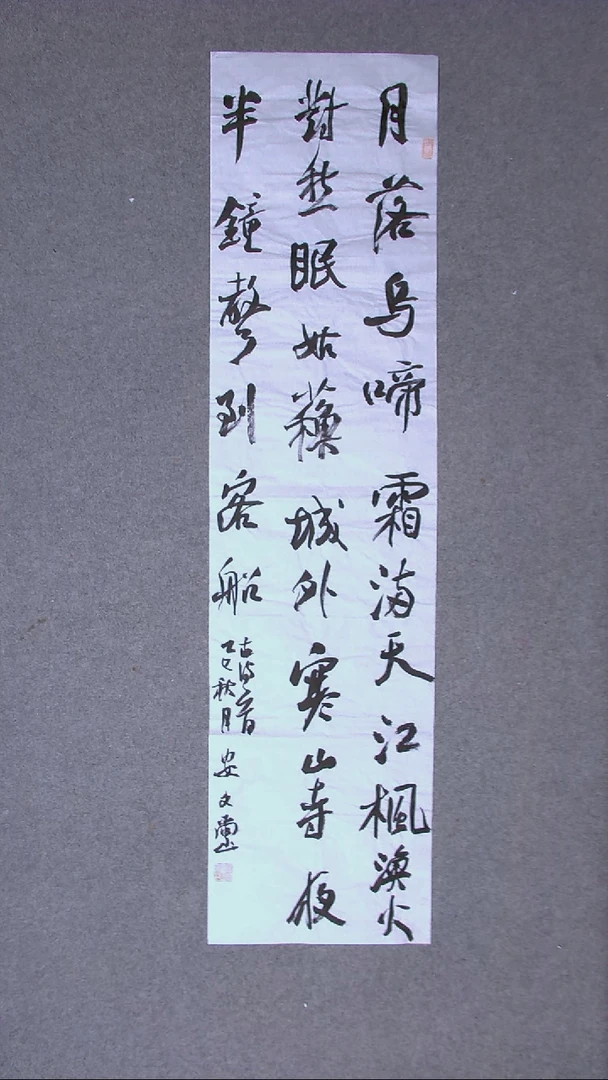 月落烏啼霜滿天江楓漁火
對愁眠姑蘓城外寒山寺夜
半鐘聲到客船
古詩一首
乙巳秋月 安文